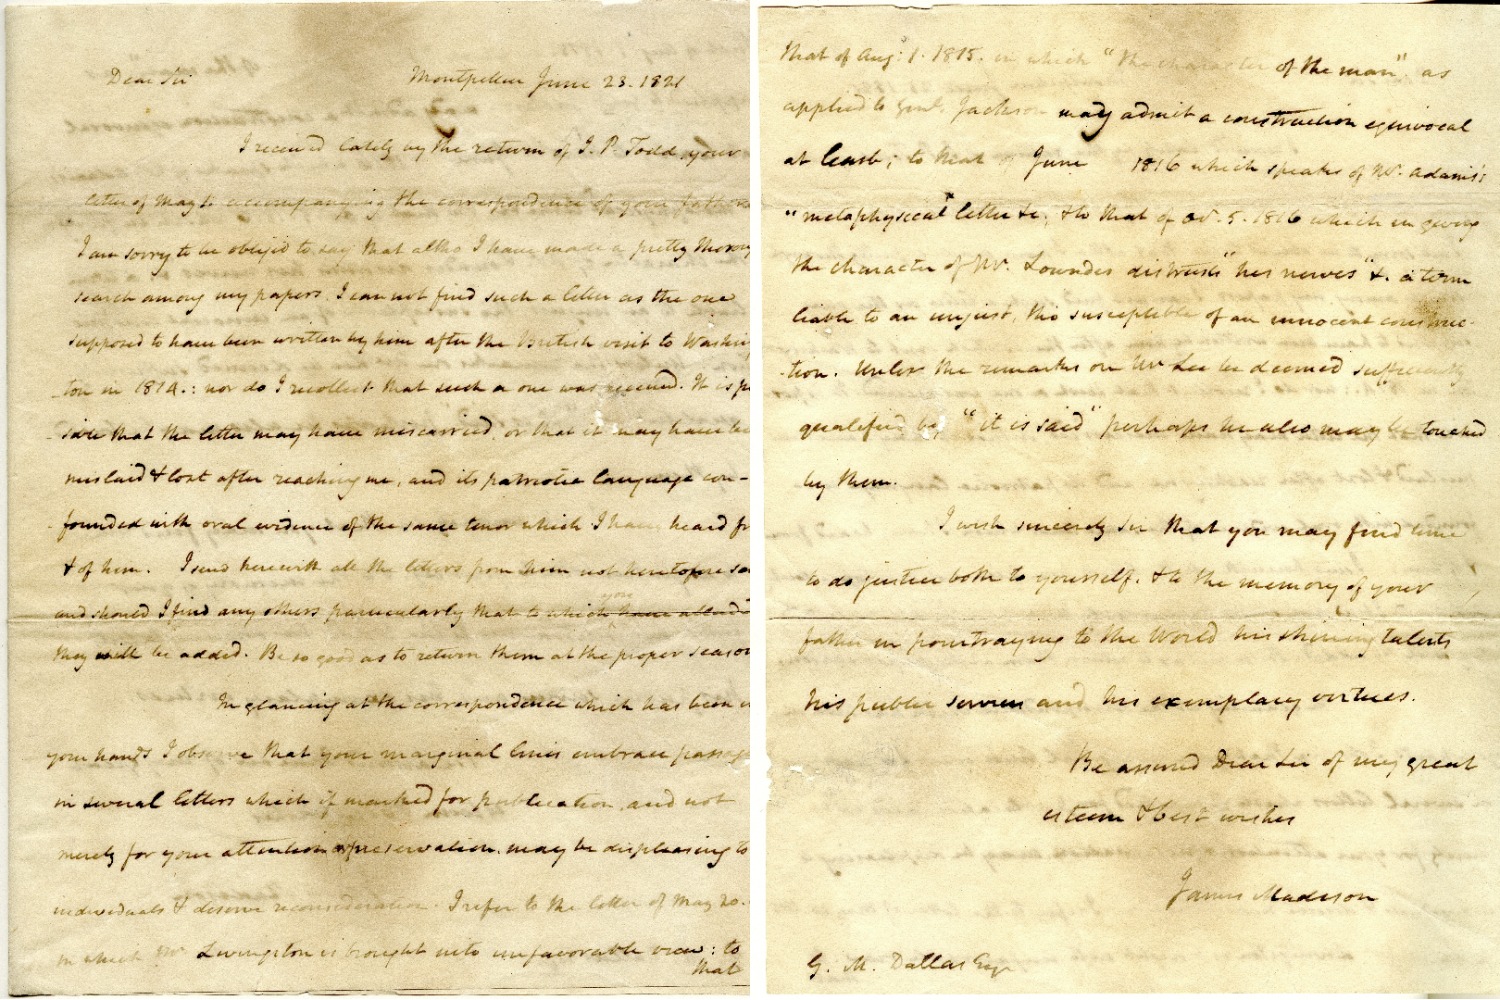 Dear Sir Montpellier June 23. 1821
I received lately by the return of J. P. Todd, your
letter of May accompanying the correspondence of your father
I am sorry to be obliged to say that altho I have made a pretty thorou
search among my papers, I can not find such a letter as the one
supposed to have been written by him after the British visit to Washin
ton in 1814.: nor do I recollect that such a one was received. It is p
sible that the letter may have miscarried, or that it may have be
mislaid & lost after reaching me, and its patriotic language con-
founded with oral evidence of the same tenor which I have heard fr
& of him. I send herewith all the letters from him not heretofore se
and should I find any others particularly that to which you have allud
they will be added. Be so good as to return them at the proper season
In glancing at the correspondence which has been in
your hands I observe that your marginal lines embrace passag
in several letters which if marked for publication, and not
merely for your attention or preservation, may be displeasing to
individuals & deserve reconsideration. I refer to the letter of May 20.
in which Mr Livingston is brought into unfavorable view: to
that
that of Aug: 1. 1815. in which "the character of the man", as
applied to Genl. Jackson may admit a construction equivocal
at least; to that of June 1816 which speaks of Mr. Adams's
"metaphysical letter &c; & to that of 5. 1816 which in giving
the character of Mr. Lowndes distrusts "his nerves" &. a term
liable to an unjust, tho susceptible of an innocent construc-
-tion. Unless the remarks on Mr Lee be deemed sufficiently
qualified by "it is said" perhaps he also may be touched
by them.
I wish sincerely Sir that you may find time
to do justice both to yourself. & to the memory of your
father in pourtraying to the World his shining talents
his public services and his exemplary virtues.
Be assured Dear Sir of my great
esteem & best wishes
James Madison
G. M. Dallas Esqr